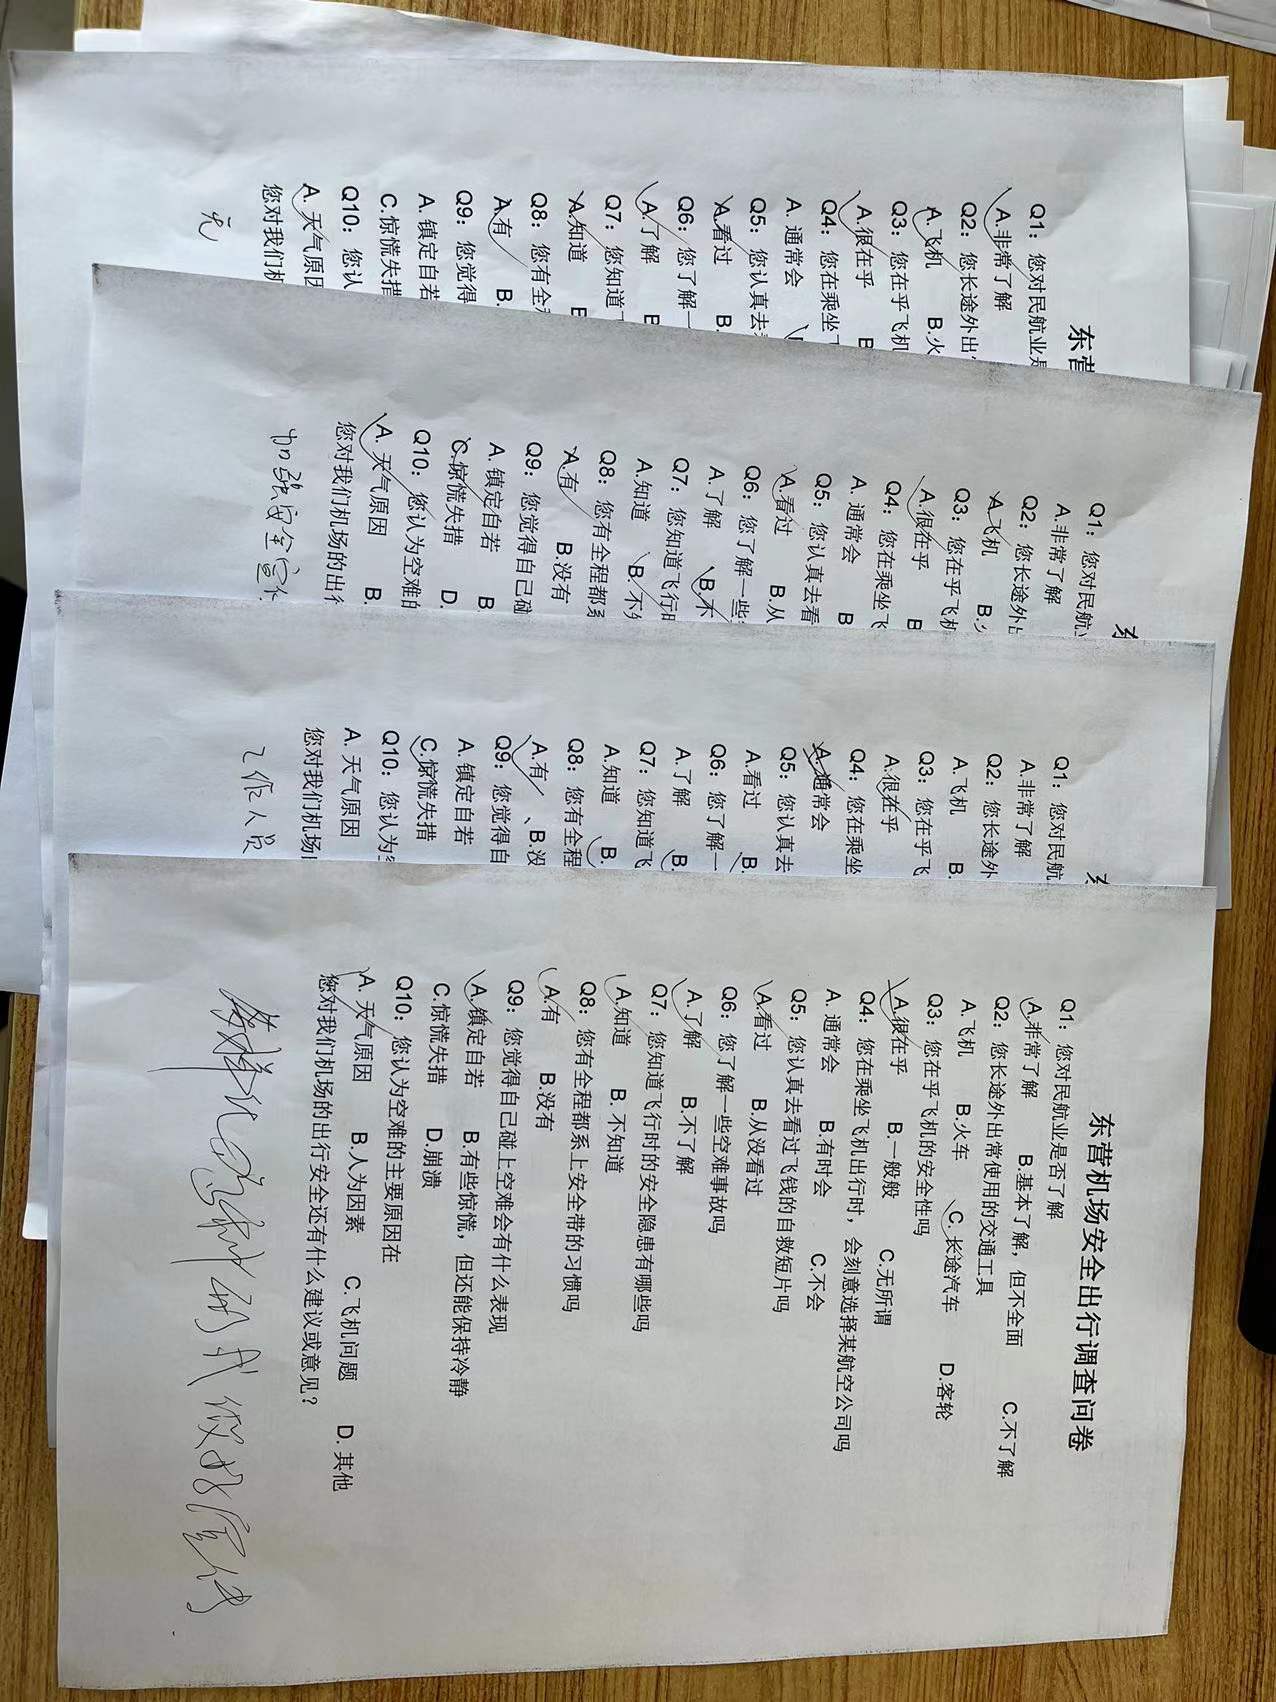 东营
Q1：您对民航业是
A.非常了解
Q2：您长途外出
A.飞机 B.火
Q3：您在乎飞机
A.很在乎 B
Q4：您在乘坐
A. 通常会
Q5：您认真去
A.看过 B.
Q6：您了解一
A.了解
Q7：您知道
A.知道
Q8：您有全
A.有 B.
Q9：您觉得
A. 镇定自若
C.惊慌失措
Q10：您认
A. 天气原因
您对我们机
无
Q1：您对民航
A.非常了解
Q2：您长途外
A.飞机 B.
Q3：您在乎飞机
A.很在乎 B
Q4：您在乘坐飞
A. 通常会 B
Q5：您认真去看
A.看过 B.从
Q6：您了解一些
A.了解 B.不
Q7：您知道飞行
A.知道 B.不
Q8：您有全程都系
A.有 B.没有
Q9：您觉得自己碰
A.镇定自若 B
C.惊慌失措 D.
Q10：您认为空难
A. 天气原因 B.
您对我们机场的出行
加强安全宣
Q1：您对民航
A.非常了解
Q2：您长途外
A.飞机 B.
Q3：您在乎飞
A.很在乎
Q4：您在乘坐
A.通常会
Q5：您认真去
A.看过 B.
Q6：您了解一
A.了解 B.
Q7：您知道飞
A.知道 B.
Q8：您有全程
A.有 B.没
Q9：您觉得自
A.镇定自若
C.惊慌失措
Q10：您认为
A. 天气原因
您对我们机场
工作人员
东营机场安全出行调查问卷
Q1：您对民航业是否了解
A.非常了解 B.基本了解，但不全面 C.不了解
Q2：您长途外出常使用的交通工具
A.飞机 B.火车 C.长途汽车 D.客轮
Q3：您在乎飞机的安全性吗
A.很在乎 B.一般般 C.无所谓
Q4：您在乘坐飞机出行时，会刻意选择某航空公司吗
A. 通常会 B.有时会 C.不会
Q5：您认真去看过飞钱的自救短片吗
A.看过 B.从没看过
Q6：您了解一些空难事故吗
A.了解 B.不了解
Q7：您知道飞行时的安全隐患有哪些吗
A.知道 B. 不知道
Q8：您有全程都系上安全带的习惯吗
A.有 B.没有
Q9：您觉得自己碰上空难会有什么表现
A.镇定自若 B.有些惊慌，但还能保持冷静
C.惊慌失措 D.崩溃
Q10：您认为空难的主要原因在
A. 天气原因 B.人为因素 C.飞机问题 D. 其他
您对我们机场的出行安全还有什么建议或意见？